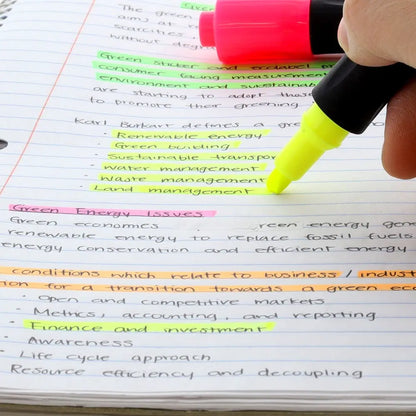 The green
aims at re
scarcities
without degr
Green Sticker and ecolabel pr
consumer facing measurement
environment and sustainab
are starting to adopt thos
to promote their greening
Karl Burkart defines a gr
· Renewable energy
· Green building
· Sustainable transpor
· Water management
· Waste management
· Land management
Green Energy Issues
Green economies reen energy gene
renewable energy to replace fossil fuels
energy conservation and efficient energy
conditions which relate to business / indust
on for a transition towards a green eco
· Open and competitive markets
· Metrics, accounting, and reporting
· Finance and investment
· Awareness
· Life cycle approach
Resource efficiency and decoupling